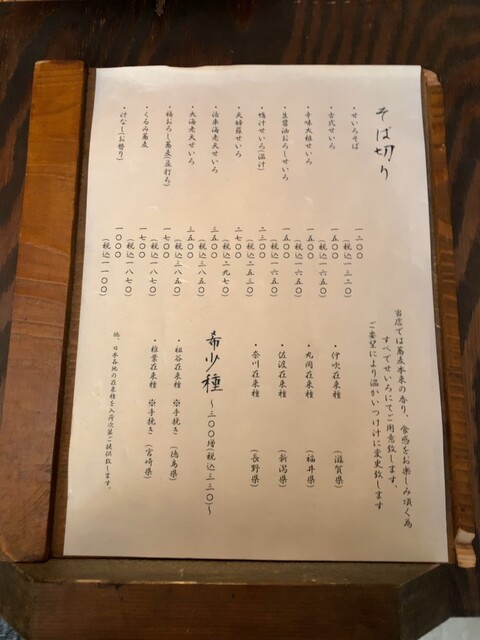 そば切り
・せいろそば
一二〇〇
(税込一三二〇)
・古式せいろ
一五〇〇
(税込一六五〇)
・辛味大根せいろ
一五〇〇
(税込一六五〇)
・生醤油おろしせいろ
一五〇〇
(税込一六五〇)
・鴨汁せいろ(温汁)
二三〇〇
(税込二五三〇)
・天婦羅せいろ
二七〇〇
(税込二九七〇)
・活車海老天せいろ
三五〇〇
(税込三八五〇)
・大海老天せいろ
三五〇〇
(税込三八五〇)
・福おろし蕎麦(皿打ち)
一七〇〇
(税込一八七〇)
・くるみ蕎麦
一七〇〇
(税込一八七〇)
・汁なし(お替り)
一〇〇〇
(税込一一〇〇)
当店では蕎麦本来の香り、食感をお楽しみ頂く為
すべてせいろにてご用意致します。
ご要望により温かいつけ汁に変更致します
・伊吹在来種 (滋賀県)
・丸岡在来種 (福井県)
・佐渡在来種 (新潟県)
・奈川在来種 (長野県)
希少種 〜三〇〇増(税込三三〇)〜
・祖谷在来種 ※手挽き (徳島県)
・椎葉在来種 ※手挽き (宮崎県)
他、日本各地の在来種を入荷次第ご提供致します。